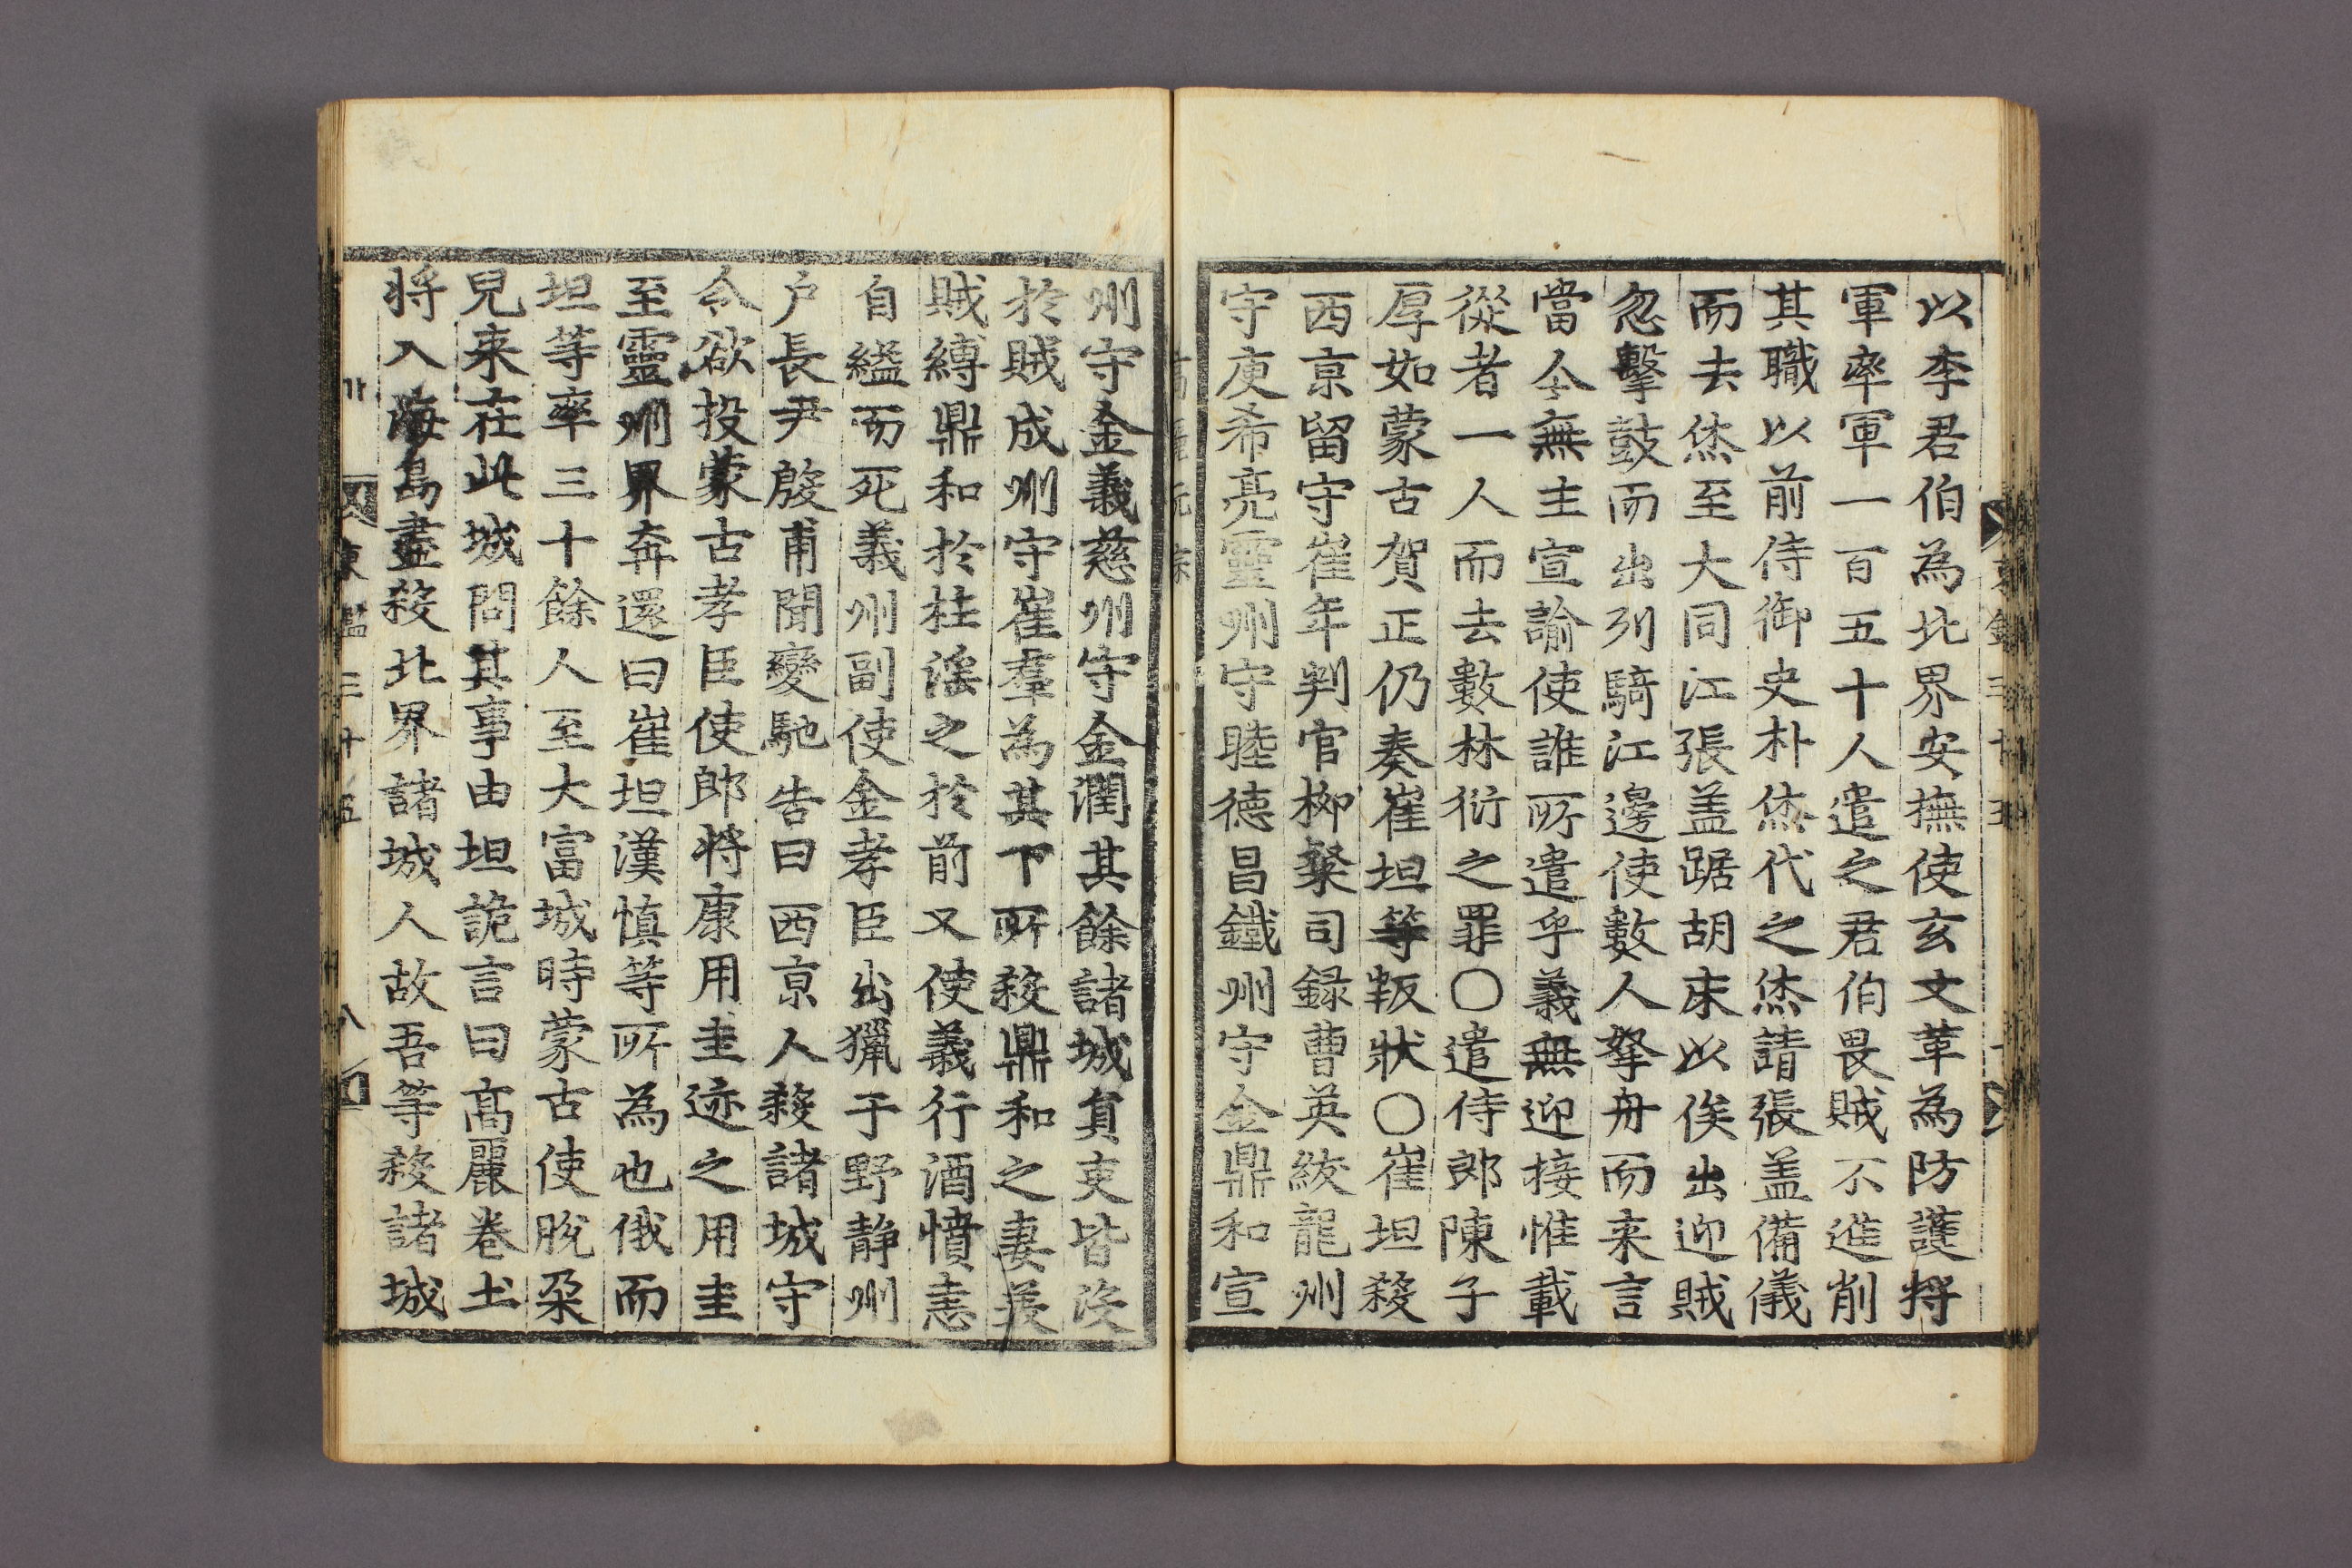 以李君伯為北界安撫使玄文革為防護將
軍率軍一百五十人遣之君伯畏賊不進削
其職以前侍御史朴烋代之烋請張盖備儀
而去烋至大同江張盖踞胡床以俟出迎賊
忽擊鼓而出列騎江邊使數人拏舟而来言
當今無主宣諭使誰所遣乎義無迎接惟載
從者一人而去數林衍之罪○遣侍郎陳子
厚如蒙古賀正仍奏崔坦等叛狀○崔坦殺
西京留守崔年判官柳粲司録曹英紱龍州
守庾希亮靈州守睦德昌鐵州守金鼎和宣
州守金義慈州守金潤其餘諸城負吏皆沒
於賊成州守崔羣為其下所殺鼎和之妻羙
賊縛鼎和於柱滛之於前又使義行酒憤恚
自縊而死義州副使金孝臣出獵于野静州
户長尹殷甫聞變馳告曰西京人殺諸城守
令欲投蒙古孝臣使郎將康用圭迹之用圭
至靈州界奔還曰崔坦漢慎等所為也俄而
坦等率三十餘人至大富城時蒙古使脫朶
兒来在此城問其事由坦詭言曰髙麗卷土
将入海島盡殺北界諸城人故吾等殺諸城
東鑑三十五
八